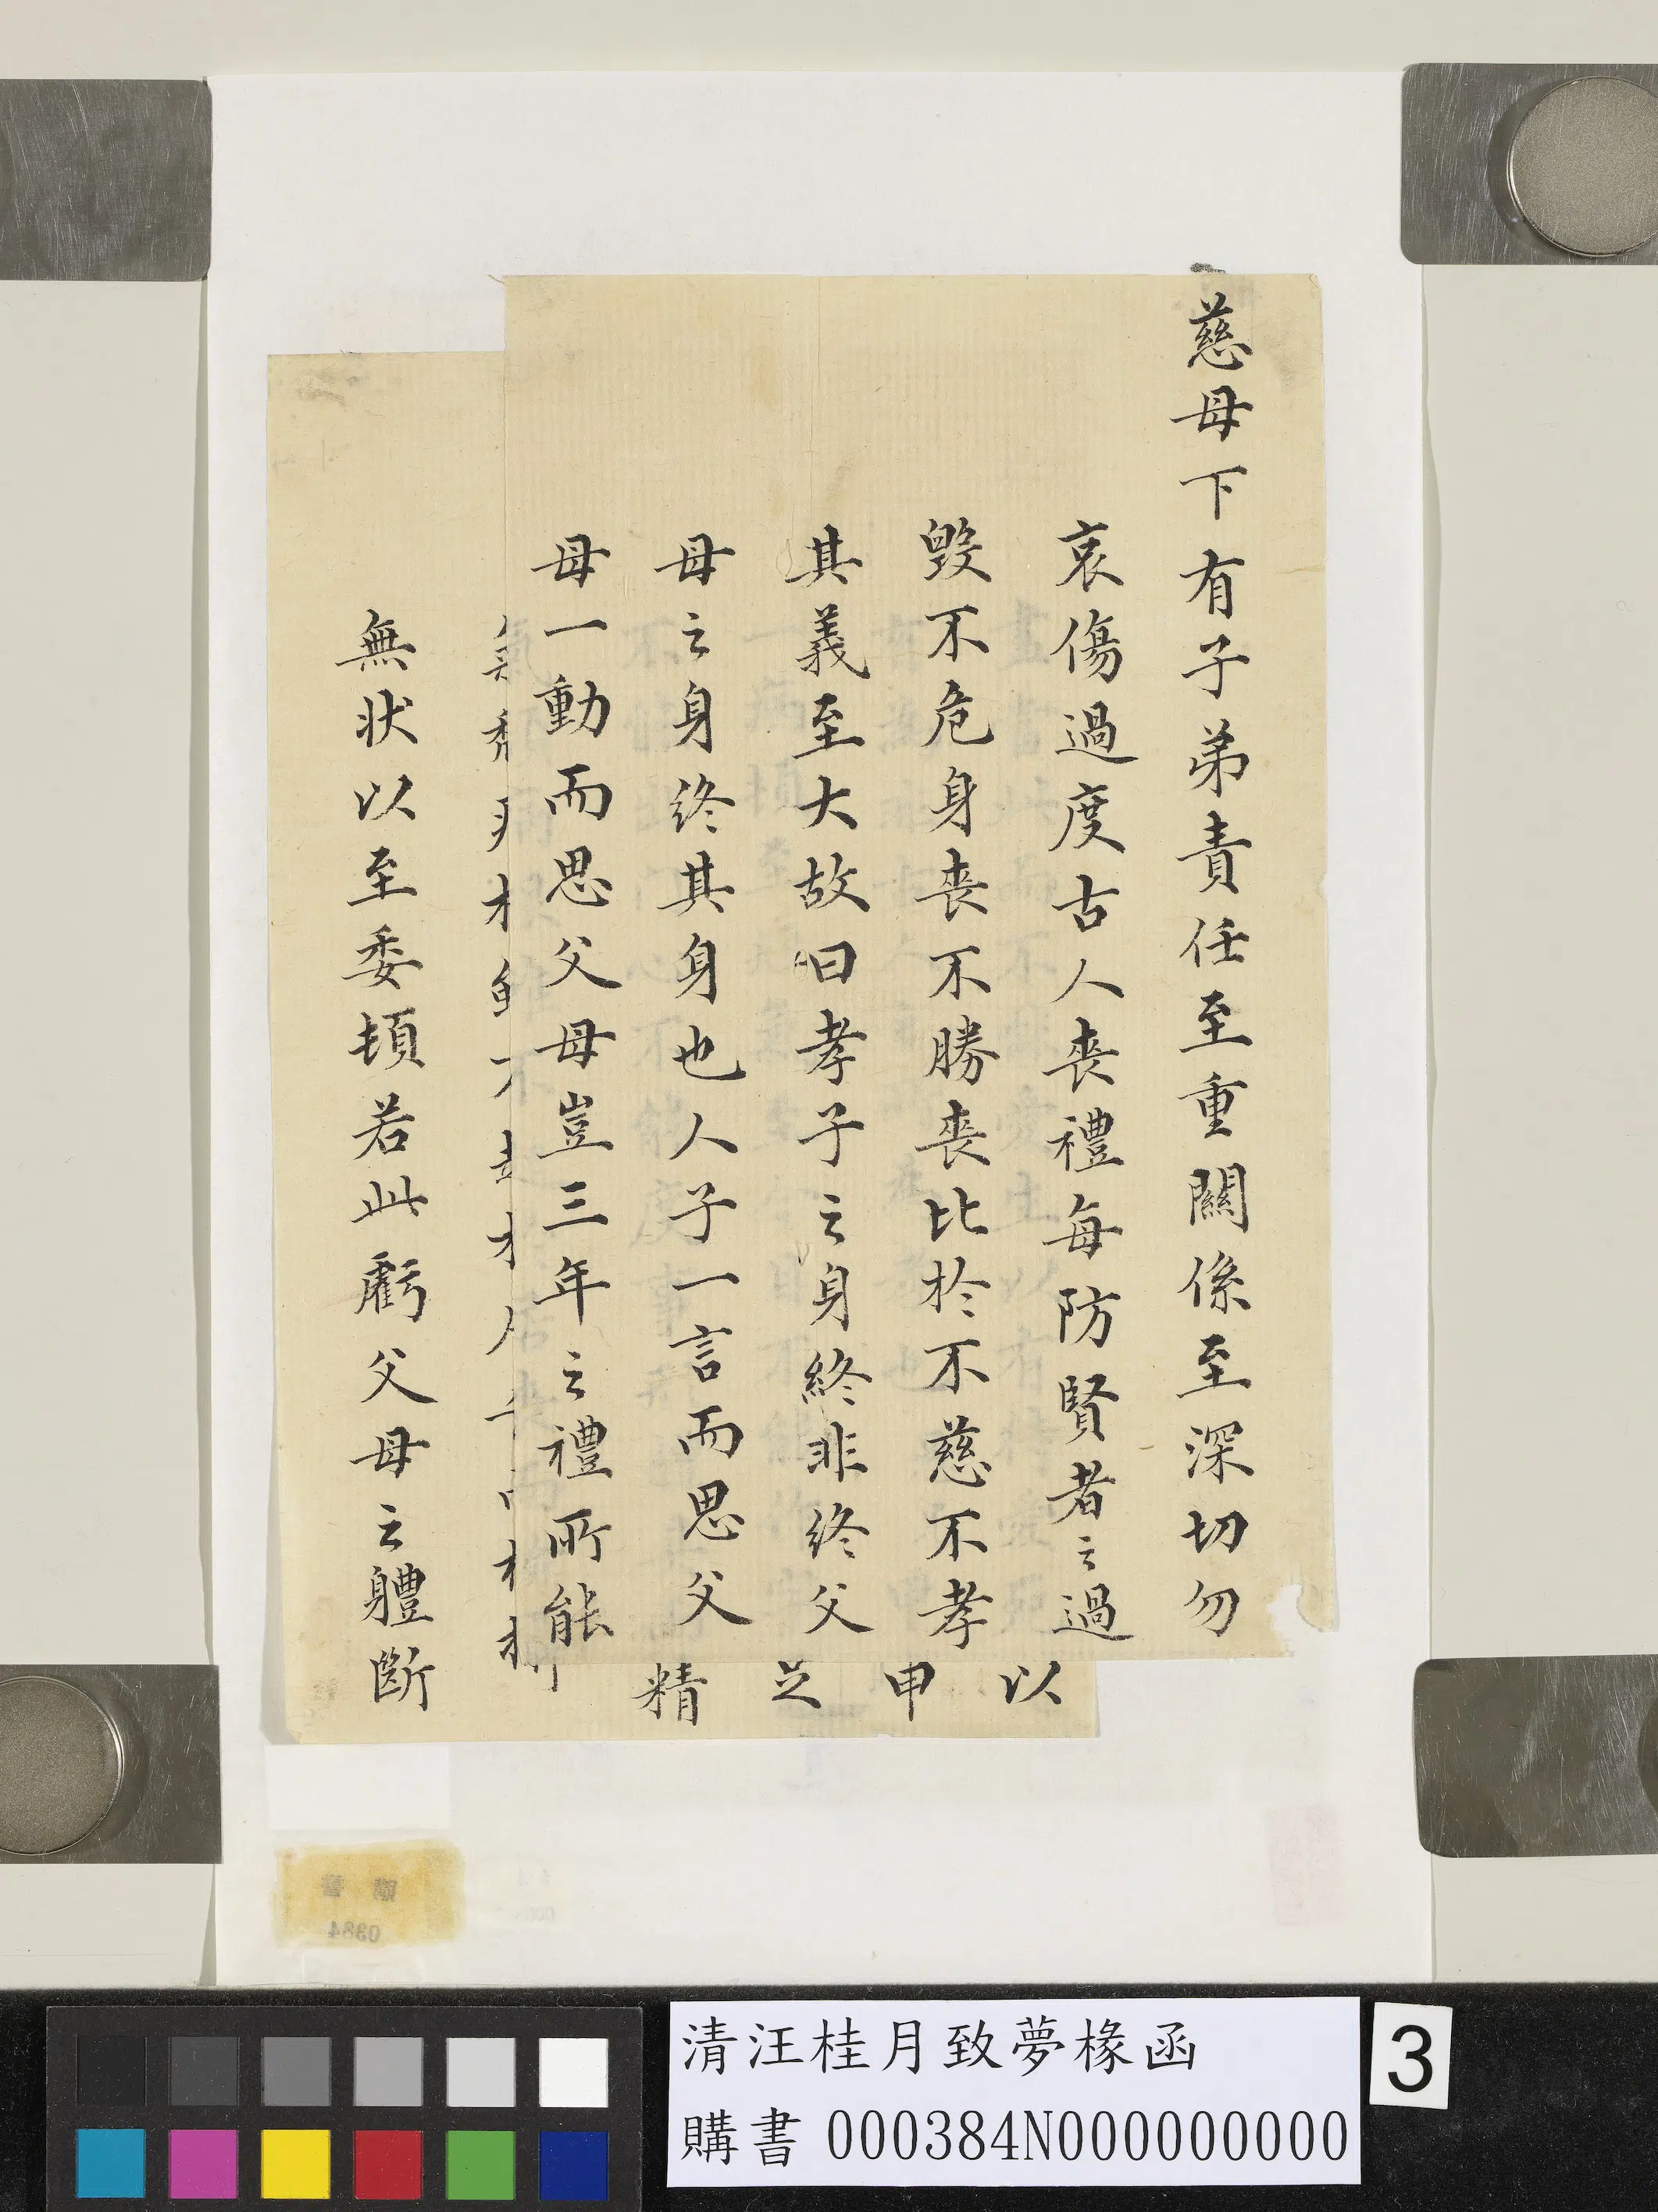 慈母下有子弟責任至重關係至深切勿
哀傷過度古人喪禮每防賢者之過
毀不危身喪不勝喪比於不慈不孝
其義至大故曰孝子之身終非終父
母之身終其身也人子一言而思父
母一動而思父母豈三年之禮所能
以
申
之
精
無狀以至委頓若此虧父母之體斷
購書
0384
清汪桂月致夢椽函
購書 000384N000000000
3